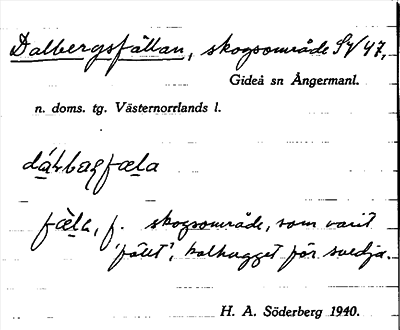 Dalbergsfällan, skogsområde SV 47,
Gideå sn Ångermanl.
n. doms. tg. Västernorrlands l.
fæ̀la, f. skogsområde, som varit
'fällt', kalhugget för svedja.
H. A. Söderberg 1940.